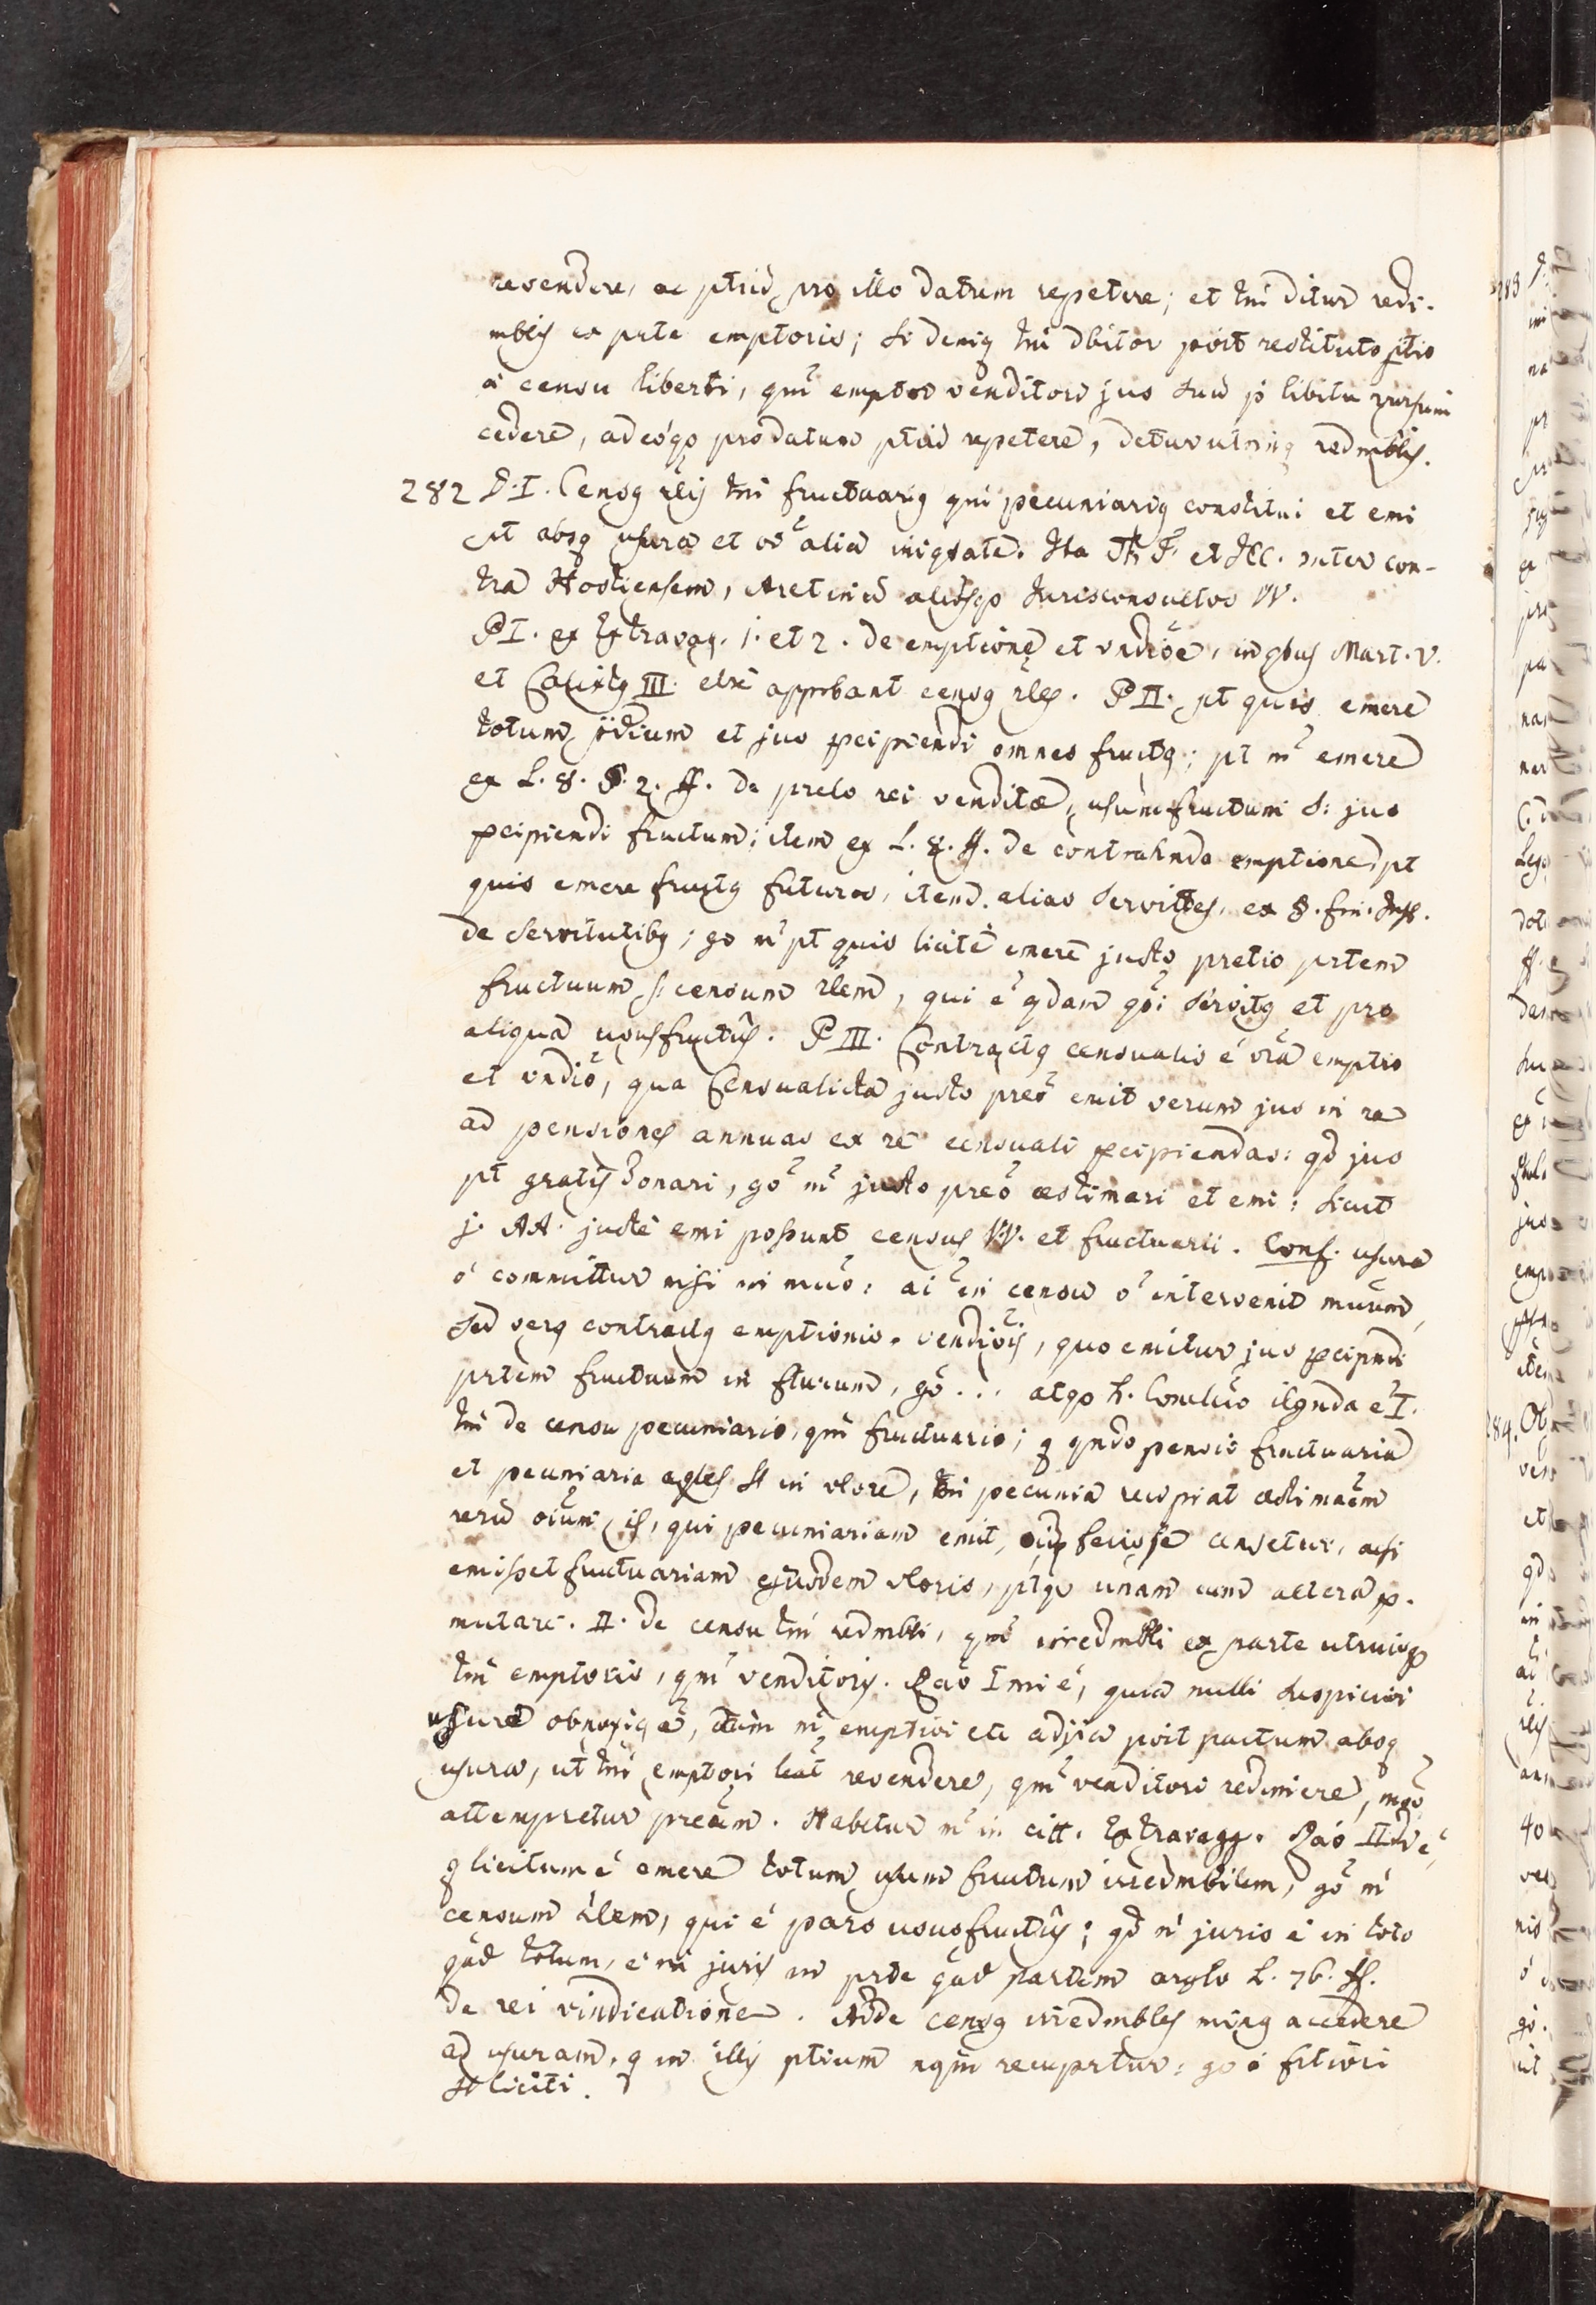 revendere, ac ptiũ pro illo datum repetere; et tm̃ ditur redi-
mblis ex prte emptoris; si deniq tm̃ dbitor poit restituto ptio
a censu liberti, qm̃ emptor venditori jus suũ p libitu rursum
cedere, adeoqꝫ pro datum ptiũ repetere, detur utrinq redmblis.
282 D. I. Censq rlis tm̃ fructuariq qm̃ pecuniariq constitui et emi
pt absq usura et oĩ alia iniqtate. Ita et JCC. inter con-
tra Hostiensem, Aretinũ aliosqꝫ Jurisconsultos VV.
P I. ex Extravag. 1. et 2. de emptione et vndiõe, in qbus Mart. V.
et Calixtq III. apprbant censq rles. P II. pt quis emere
totum pdium et jus pcipiendi omnes fructq; pt m̃ emere
ex L. 8. §. 2. ff. de prclo rei venditæ, usumfructum s: jus
pcipiendi fructum; item ex L. 8. ff. de contrahnda emptione, pt
quis emere fructq futuros, item alias servittes, ex §. fin. Inst.
de servitutibq; go m̃ pt quis licitè emere justo pretio prtem
fructuum s: censum rlem, qui ẽ qdam qsi servitq et prs
aliqua ususfructûs. P III. Contractq censualis ẽ vra emptio
et vndiõ, qua Censualista justo preõ emit verum jus in re
ad pensiones annuas ex re censuali pcipiendas: qd jus
pt gratis donari, gõ m̃ justo preõ æstimari et emi: sicut
j. AA. justè emi possunt census VV. et fructuarii. Conf. usura
õ committur nisi in muõ: ai in censu õ intervenit muũm,
sed verq contractq emptionis-vendiõis, quo emitur jus pcipndi
prtem fructuum in fturum, gõ... atqꝫ h. Conclũo ĩlgnda ẽ I.
tm̃ de censu pecuniario, qm̃ fructuario; q qndo pensio fructuaria
et pecuniaria aqles st in vlore, tm̃ pecunia recipiat æstimaẽm
rerũ oĩum, is, qui pecuniariam emit, fecisse censetur, acsi
emisset fructuariam ejusdem vloris, ptqꝫ unam cum altera p-
mutare. II. de censu tm̃ redmbli, qm̃ irredmbli ex parte utriusqꝫ
tm̃ emptoris, qm̃ venditoris. Raõ I mi ẽ, quia nulli suspicioi
usuræ obnoxiq ẽ, cum m̃ emptioi etc adjici poit pactum absq
usura, ut tm̃ emptori leat revendere, qm̃ venditori redimere, mõo
attempretur preũm. Habetur m̃ in citt. Extravagg. Raõ II di ẽ,
q licitum ẽ emere totum usum fructum irredmbilem, gõ m̃
censum rlem, qui ẽ pars ususfructûs; qd m̃ juris ẽ in toto
qãd totum, ẽ m̃ juris in prte qãd partem arglo L. 76. ff.
de rei vindicatione. Adde censq irredmbles minq accedere
ad usuram, q in illis ptium nqm recuprtur: go à frtiori
st liciti.